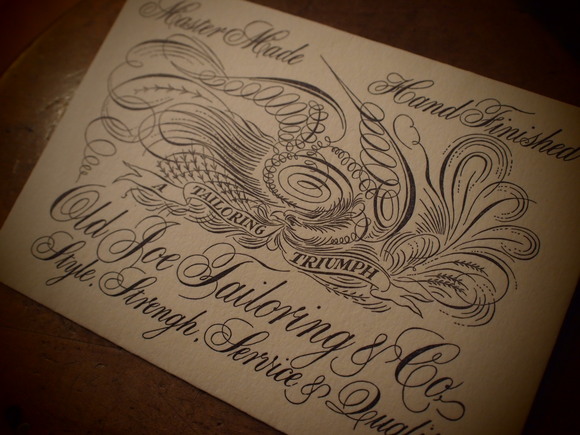 Master Made
Hand Finished
A TAILORING TRIUMPH
Old Joe Tailoring & Co.
Style, Strengh, Service & Quali